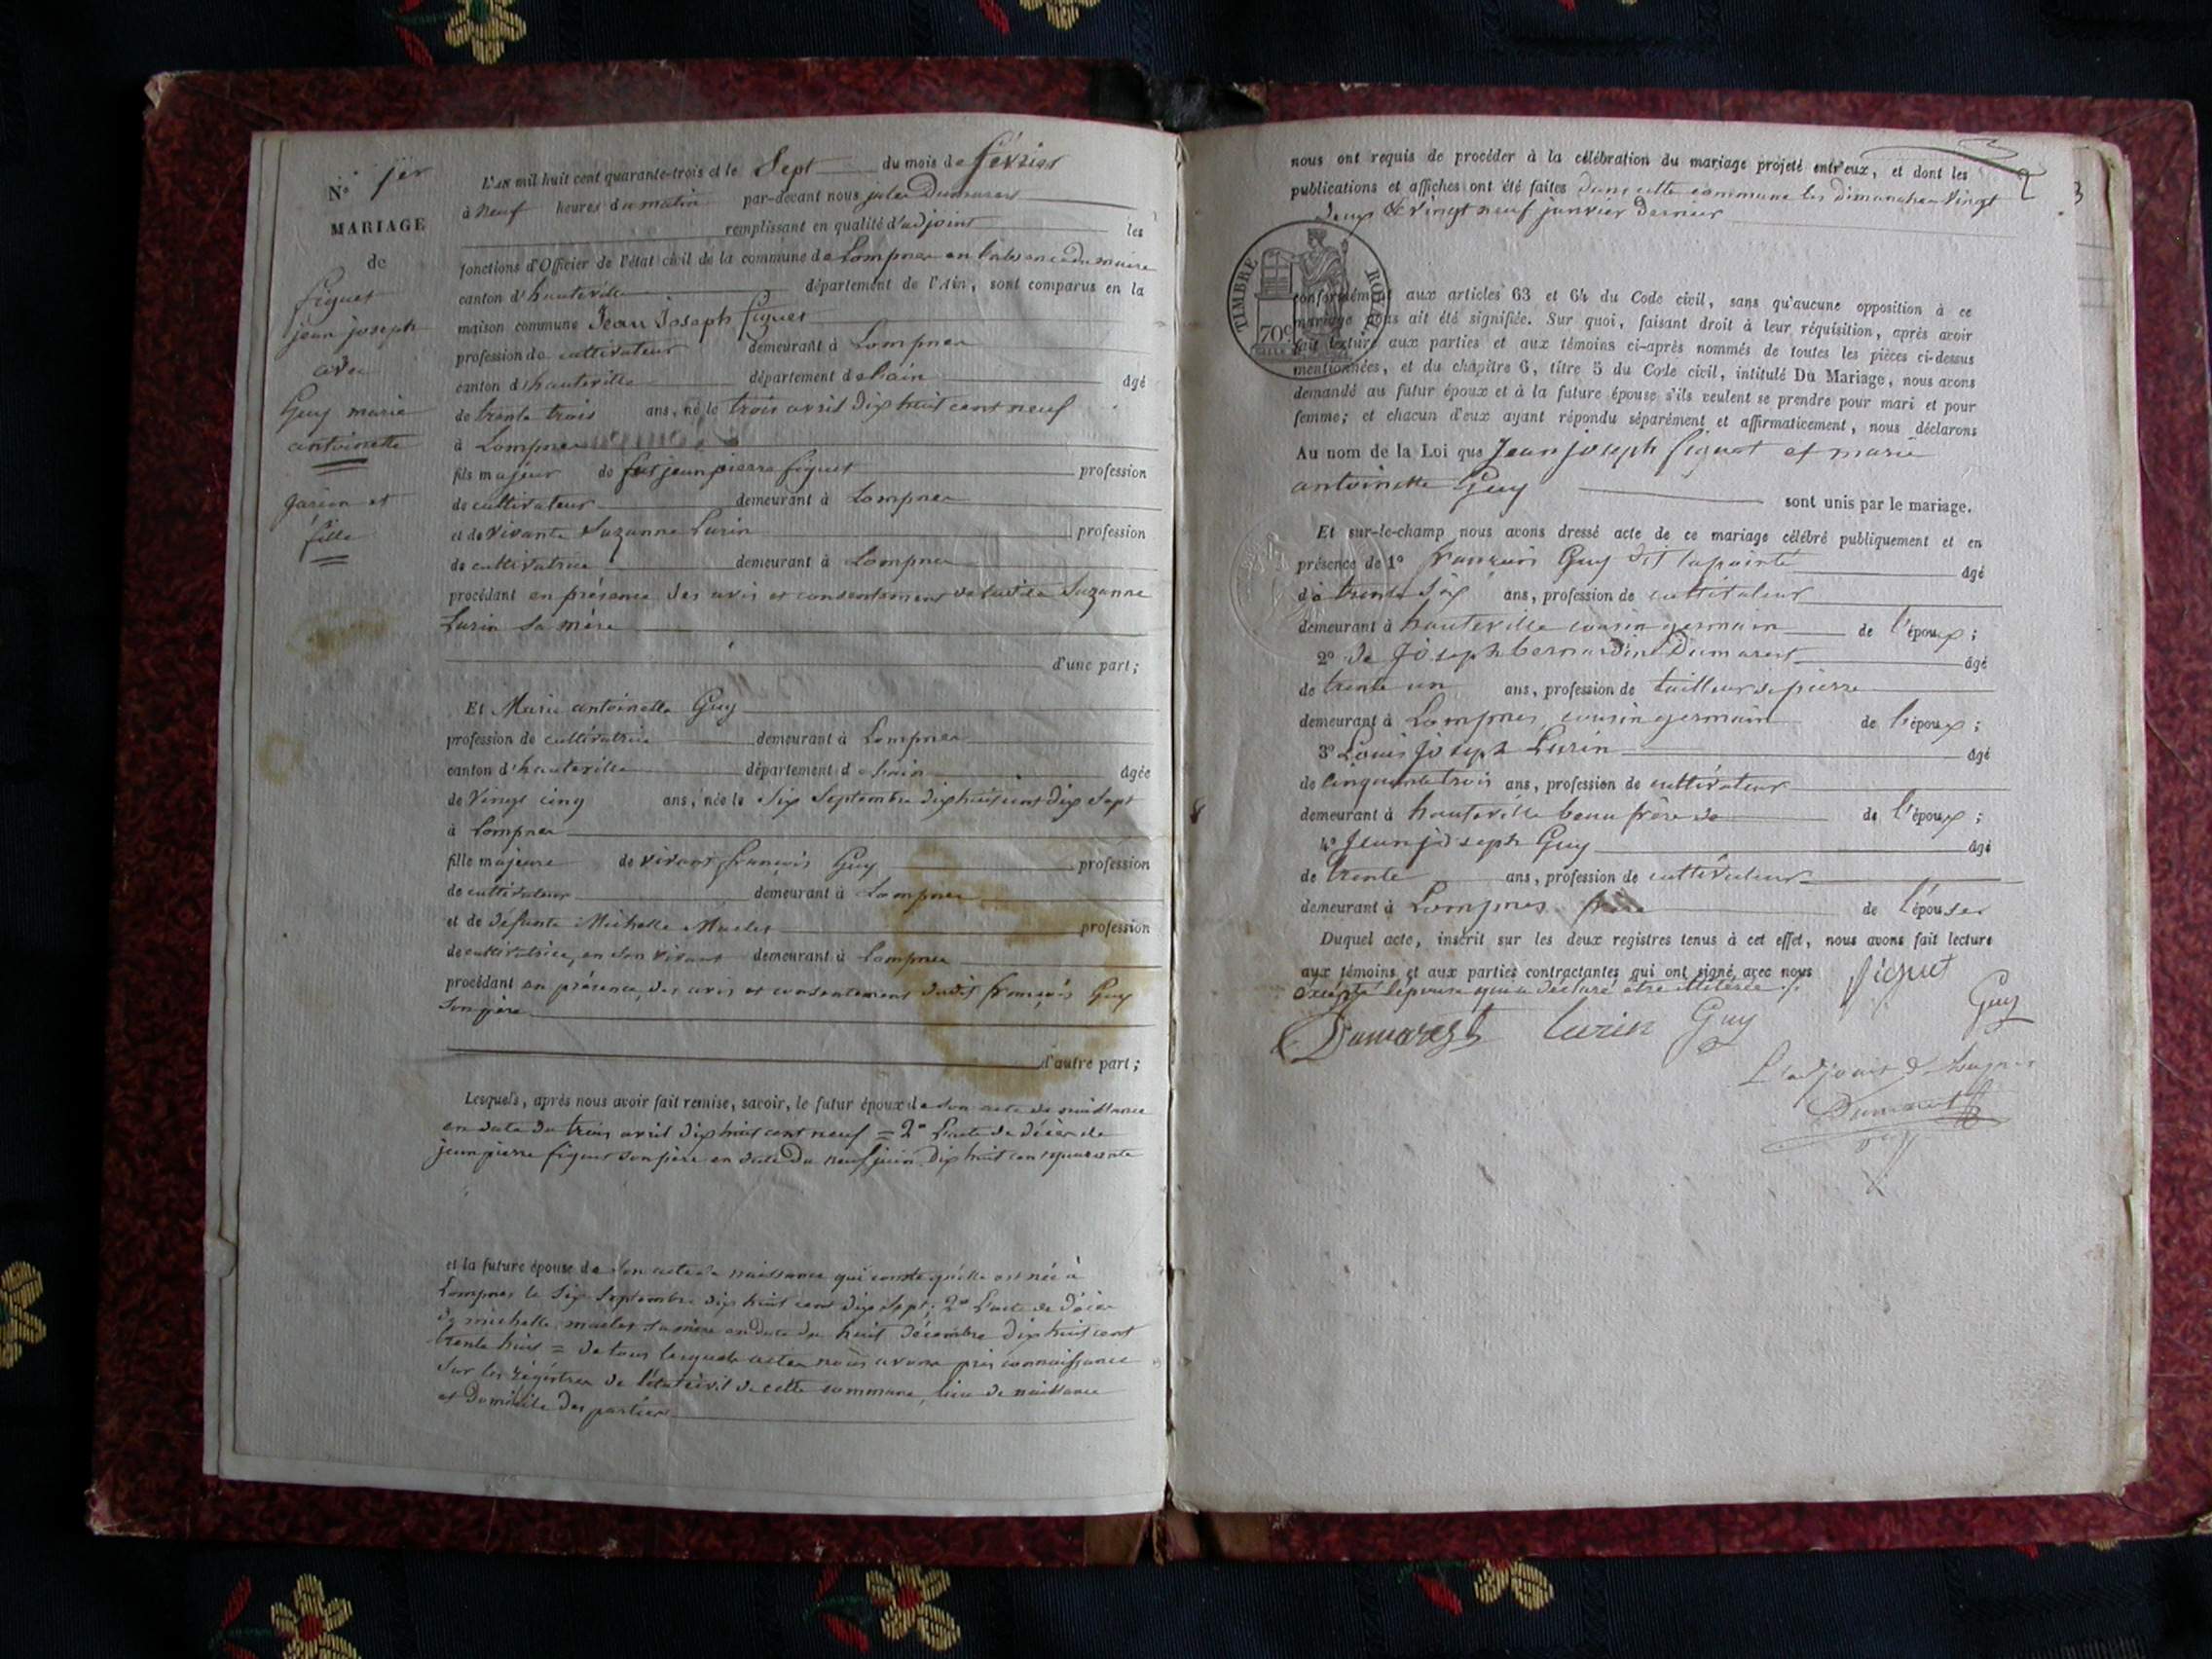 N° 1er
MARIAGE
de
figuet
jean joseph
avec
Guy marie
antoinette
garçon et
fille
L'AN mil huit cent quarante-trois et le Sept du mois de février
à neuf heures du matin par-devant nous jules Dumarest
remplissant en qualité d'adjoint les
fonctions d'Officier de l'état civil de la commune de Lompnes en l'absence du maire
canton d'hauteville département de l'Ain, sont comparus en la
maison commune Jean Joseph figuet
profession de cultivateur demeurant à Lompnes
canton d'hauteville département de l'ain âgé
de trente trois ans, né le trois avril dix huit cent neuf
à Lompnes
fils majeur de feu jean pierre figuet profession
de cultivateur demeurant à Lompnes
et de vivante Suzanne Lurin profession
de cultivatrice demeurant à Lompnes
procédant en présence des avis et consentement de ladite Suzanne
Lurin sa mère
d'une part;
Et Marie antoinette Guy
profession de cultivatrice demeurant à Lompnes
canton d'hauteville département d l'ain âgée
de vingt cinq ans, née le Six Septembre dix huit cent dix Sept
à Lompnes
fille majeure de vivant françois Guy profession
de cultivateur demeurant à Lompnes
et de défunte Michelle Maclet profession
de cultivatrice, en son vivant demeurant à Lompnes
procédant en présence, des avis et consentement dudit françois Guy
Son père
d'autre part;
Lesquels, après nous avoir fait remise, savoir, le futur époux de son acte de naissance
en date du trois avril dix huit cent neuf = 2° L'acte de décès de
jean pierre figuet son père en date du neuf juin dix huit cent quarante
et la future épouse de son acte de naissance qui conste qu'elle est née à
Lompnes le Six Septembre dix huit cent dix Sept; 2° L'acte de décès
de michelle maclet sa mère en date du huit décembre dix huit cent
trente huit = de tous lesquels actes nous avons pris connaissance
Sur les régistres de l'état civil de cette commune, lieu de naissance
et Domicile des parties
2 3
nous ont requis de procéder à la célébration du mariage projeté entr'eux, et dont les
publications et affiches ont été faites dans cette commune les dimanches vingt
deux & vingt neuf janvier dernier
TIMBRE ROYAL
70c
conformément aux articles 63 et 64 du Code civil, sans qu'aucune opposition à ce
mariage nous ait été signifiée. Sur quoi, faisant droit à leur réquisition, après avoir
fait lecture aux parties et aux témoins ci-après nommés de toutes les pièces ci-dessus
mentionnées, et du chapitre 6, titre 5 du Code civil, intitulé Du Mariage, nous avons
demandé au futur époux et à la future épouse s'ils veulent se prendre pour mari et pour
femme; et chacun d'eux ayant répondu séparément et affirmativement, nous déclarons
Au nom de la Loi que Jean joseph figuet et marie
antoinette Guy sont unis par le mariage.
Et sur-le-champ nous avons dressé acte de ce mariage célébré publiquement et en
présence de 1° françois Guy dit lapointe âgé
de trente six ans, profession de cultivateur
demeurant à hauteville cousin germain de l'époux;
2° de Joseph bernardin Dumarest âgé
de trente un ans, profession de tailleur de pierre
demeurant à Lompnes, cousin germain de l'époux;
3° Louis joseph Lurin âgé
de cinquante trois ans, profession de cultivateur
demeurant à hauteville beau frère de de l'époux;
4° Jean joseph Guy âgé
de trente ans, profession de cultivateur
demeurant à Lompnes frère de l'épouse
Duquel acte, inscrit sur les deux registres tenus à cet effet, nous avons fait lecture
aux témoins et aux parties contractantes qui ont signé avec nous
excepté l'épouse qui a déclaré être illitérée
figuet
Guy
Dumarest Lurin Guy
L'adjoint de Lompnes
Dumarest